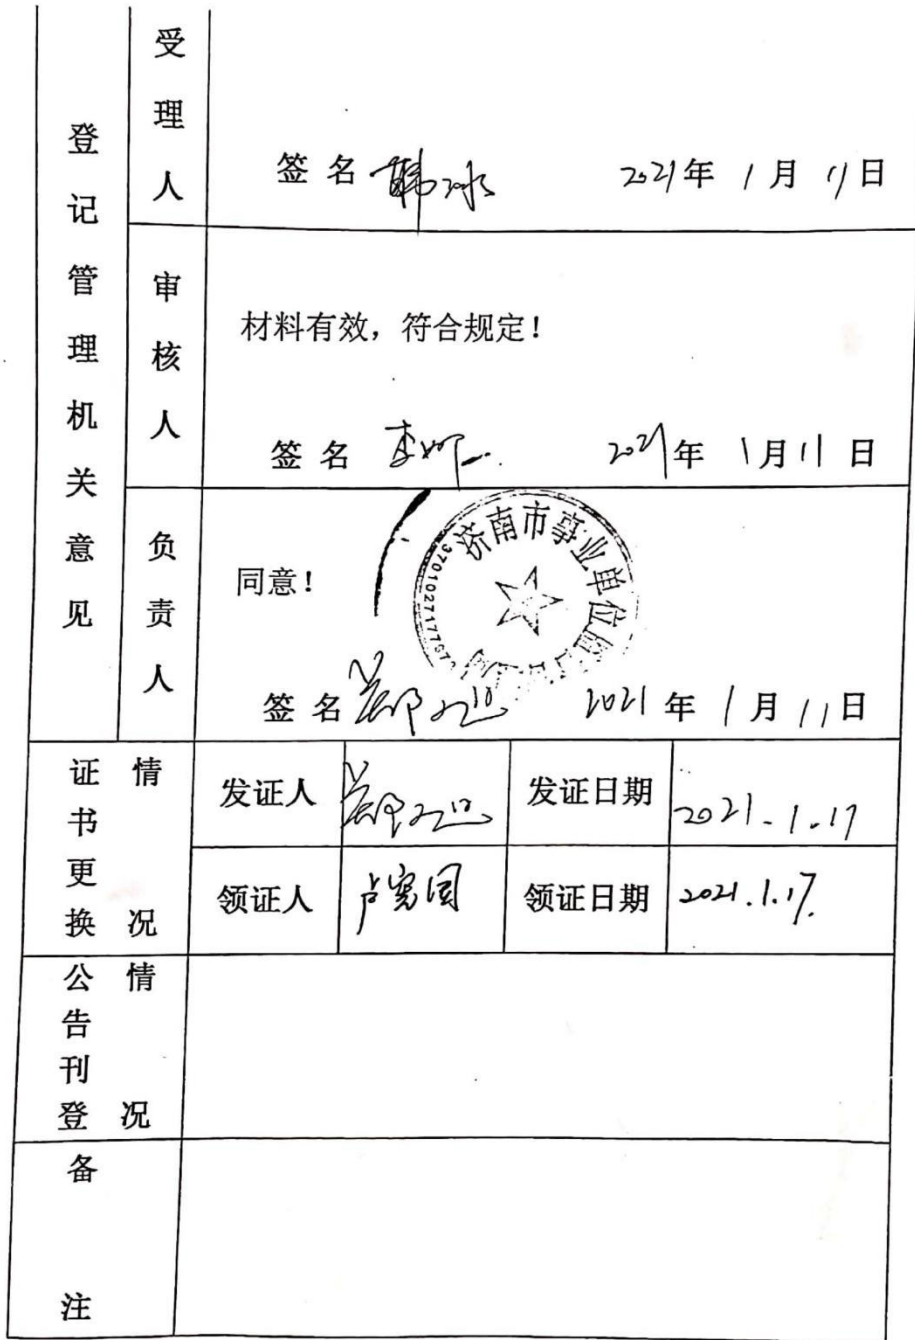 登记管理机关意见
受理人
签名 韩冰 2021年1月11日
审核人
材料有效，符合规定！
签名 2021年1月11日
负责人
同意！
济南市事业单位
签名 2021年1月11日
证书更换情况
发证人 发证日期 2021.1.17
领证人 卢宪国 领证日期 2021.1.17.
公告刊登情况
备注